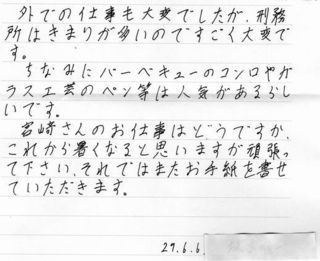 外での仕事も大変でしたが、刑務
所はきまりが多いのですごく大変で
す。
ちなみにバーベキューのコンロやガ
ラス工芸のペン等は人気があるらし
いです。
岩崎さんのお仕事はどうですか、
これから暑くなると思いますが頑張っ
て下さい、それではまたお手紙を書せ
ていただきます。
29.6.6.